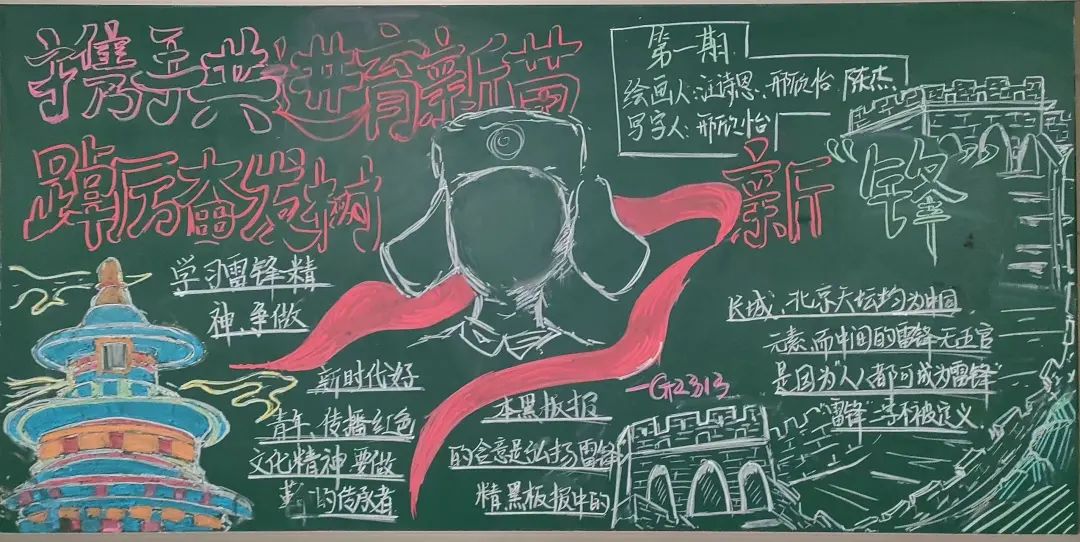 携手共进育新苗
踔厉奋发树新“锋
第一期
绘画人:汪诗思、邢欣怡 陈杰
写字人:邢欣怡
学习雷锋精
神,争做
新时代好
青年、传播红色
文化精神,要做
的传承者
本黑板报
的含意是弘扬雷锋
精,黑板报中的
—G2313
长城、北京天坛均为中国
元素,而中间的雷锋无五官
是因为“人人都可成为雷锋”
“雷锋”不被定义